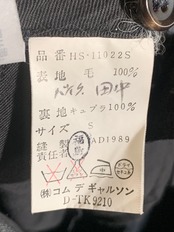 品番HS-11022S
表地 毛 100%
田中
裏地キュプラ100%
サイズ S
縫製
責任者 AD1989
(株)コム デ ギャルソン
D-TK9210